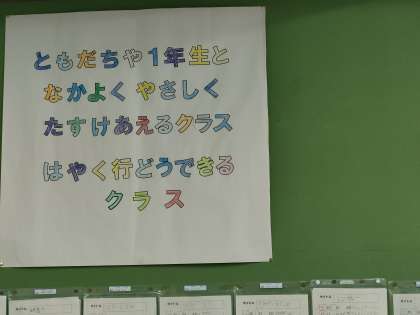 ともだちや1年生と
なかよく やさしく
たすけあえるクラス
はやく行どうできる
クラス